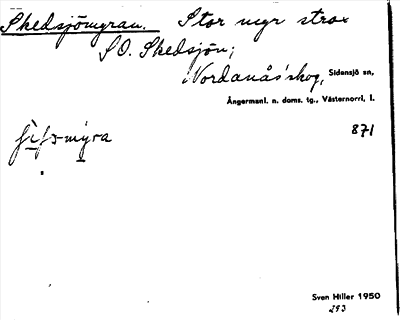 Skedsjömyran. Stor myr strax
SO. Skedsjön;
Nordanås'skog, Sidensjö sn,
Ångermanl. n. doms. tg., Västernorrl. l.
871
Sven Hiller 1950
293